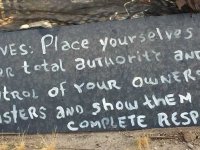 VES: Place yourselves
ER total authority AND
ntrol of YOUR OWNER
ASTERS AND show them
COMPLETE RESP